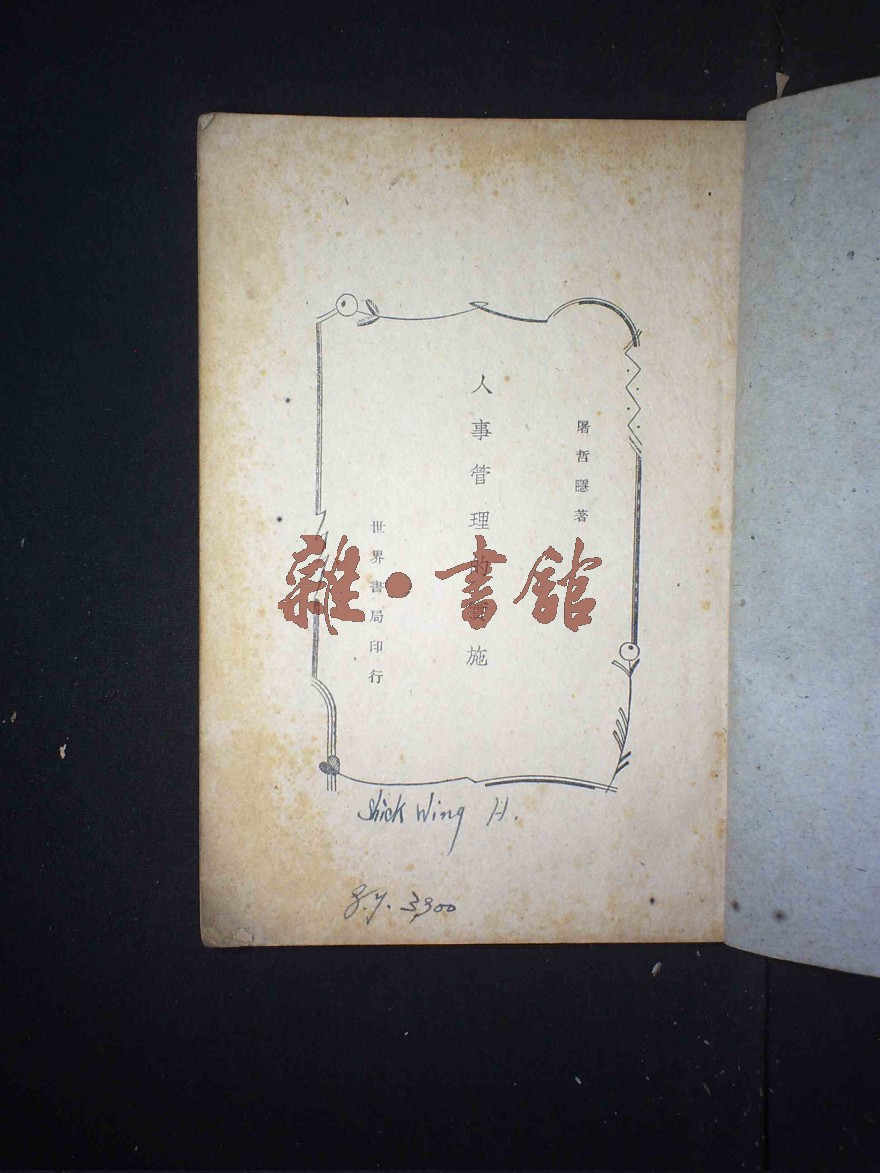 屠哲隱著
人事管理的實施
世界書局印行
雜·書館
Shick Wing H.
g.y. 3,900